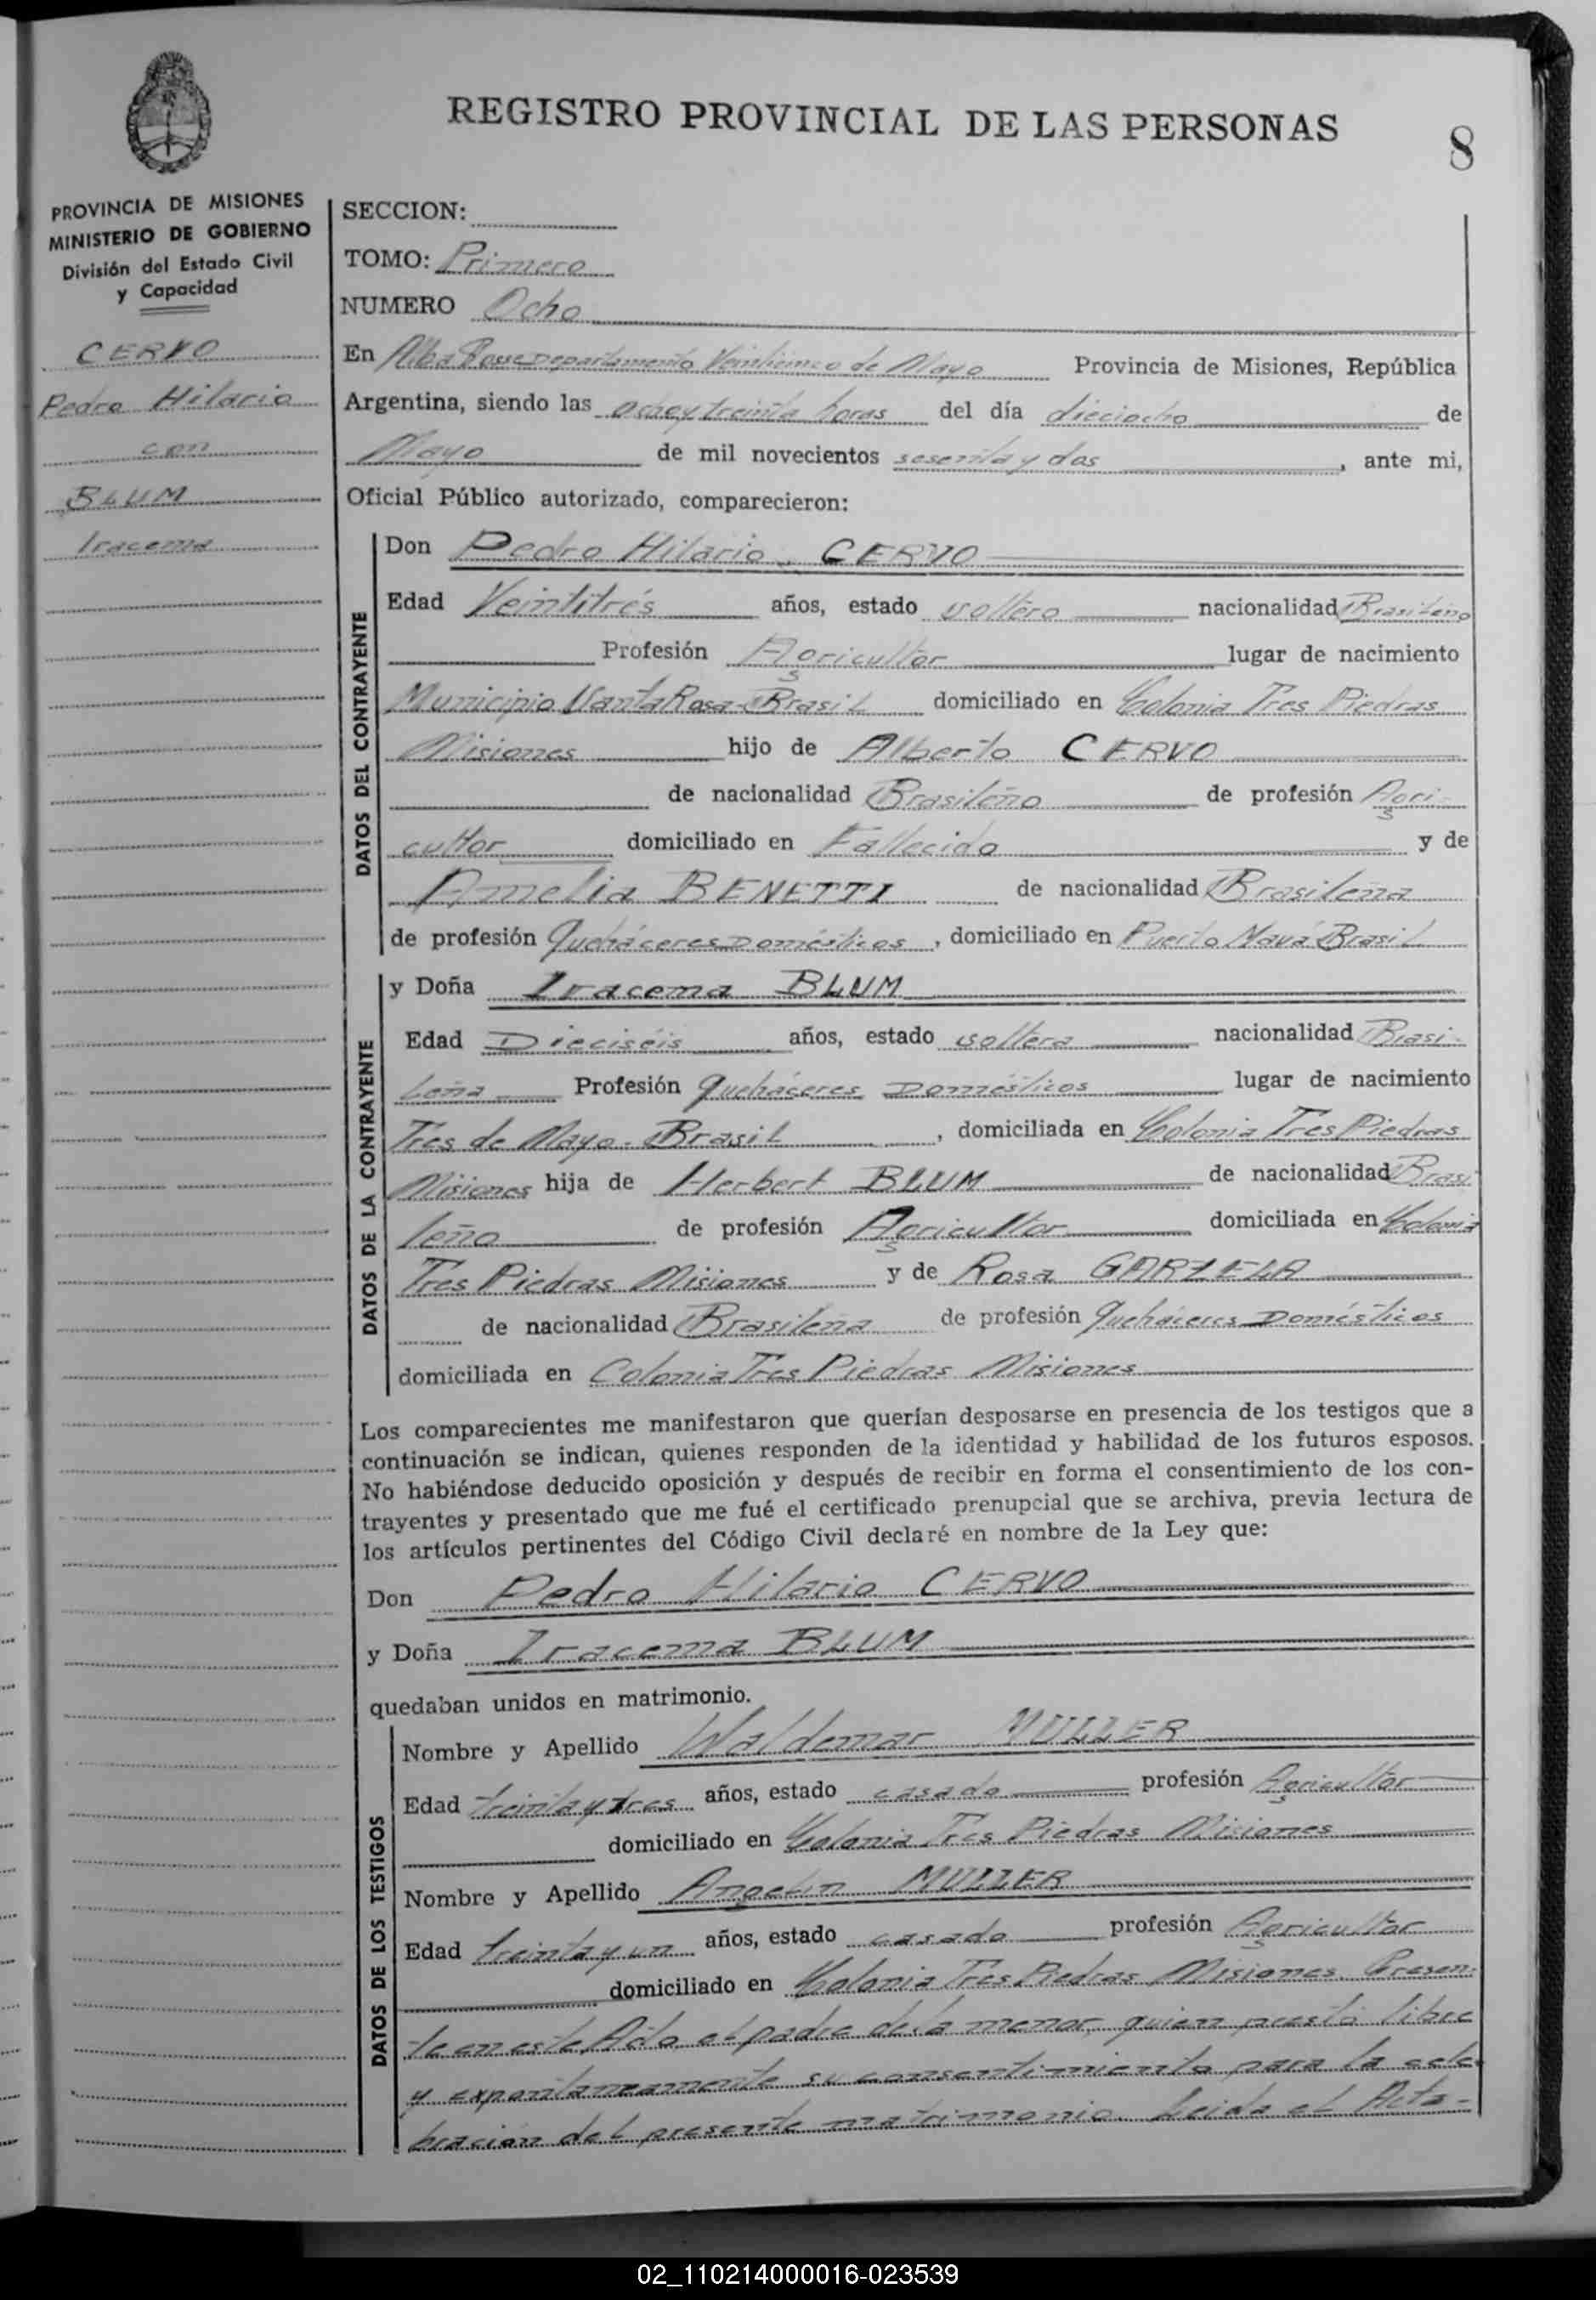 REGISTRO PROVINCIAL DE LAS PERSONAS
8
PROVINCIA DE MISIONES
MINISTERIO DE GOBIERNO
División del Estado Civil
y Capacidad
CERVO
Pedro Hilario
con
BLUM
Iracema
SECCION:
TOMO: Primero
NUMERO Ocho
En Alba Posse Departamento Veinticinco de Mayo Provincia de Misiones, República
Argentina, siendo las ocho y treinta horas del día dieciocho de
Mayo de mil novecientos sesenta y dos, ante mi,
Oficial Público autorizado, comparecieron:
DATOS DEL CONTRAYENTE
Don Pedro Hilario CERVO
Edad Veintitrés años, estado soltero nacionalidad Brasileño
Profesión Agricultor lugar de nacimiento
Municipio Santa Rosa-Brasil domiciliado en Colonia Tres Piedras
Misiones hijo de Alberto CERVO
de nacionalidad Brasileño de profesión Agri-
cultor domiciliado en Fallecido y de
Amelia BENETTI de nacionalidad Brasileña
de profesión Quehaceres Domésticos, domiciliado en Puerto Mauá Brasil
DATOS DE LA CONTRAYENTE
y Doña Iracema BLUM
Edad Dieciséis años, estado soltera nacionalidad Brasi-
leña Profesión Quehaceres Domésticos lugar de nacimiento
Tres de Mayo-Brasil, domiciliada en Colonia Tres Piedras
Misiones hija de Herbert BLUM de nacionalidad Brasi
leño de profesión Agricultor domiciliada en Colonia
Tres Piedras Misiones y de Rosa GARZELA
de nacionalidad Brasileña de profesión Quehaceres Domésticos
domiciliada en Colonia Tres Piedras Misiones
Los comparecientes me manifestaron que querían desposarse en presencia de los testigos que a
continuación se indican, quienes responden de la identidad y habilidad de los futuros esposos.
No habiéndose deducido oposición y después de recibir en forma el consentimiento de los con-
trayentes y presentado que me fué el certificado prenupcial que se archiva, previa lectura de
los artículos pertinentes del Código Civil declaré en nombre de la Ley que:
Don Pedro Hilario CERVO
y Doña Iracema BLUM
quedaban unidos en matrimonio.
DATOS DE LOS TESTIGOS
Nombre y Apellido Waldemar MULLER
Edad treinta y tres años, estado casado profesión Agricultor
domiciliado en Colonia Tres Piedras Misiones
Nombre y Apellido Angelin MULLER
Edad treinta y un años, estado casado profesión Agricultor
domiciliado en Colonia Tres Piedras Misiones. Presen-
te en este Acto, el padre de la menor, quien prestó libre
y expontaneamente su consentimiento para la cele-
bración del presente matrimonio. Leida el Acta-
02_110214000016-023539